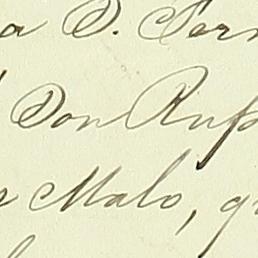 a D. Fern
Don Ruf
Malo, q